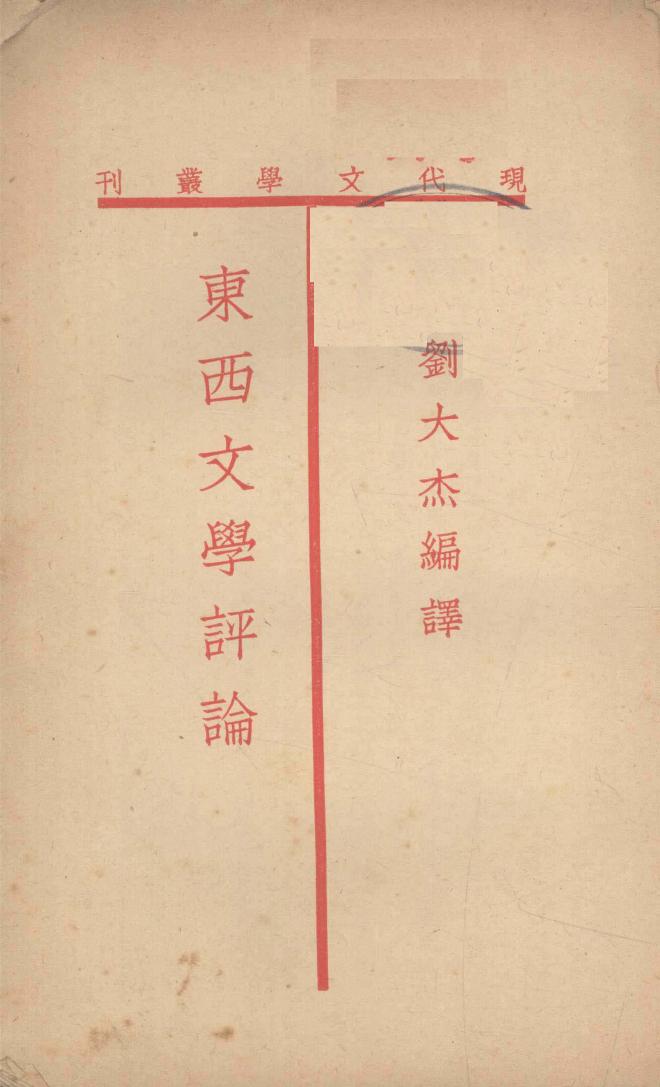 現代文學叢刊
劉大杰編譯
東西文學評論